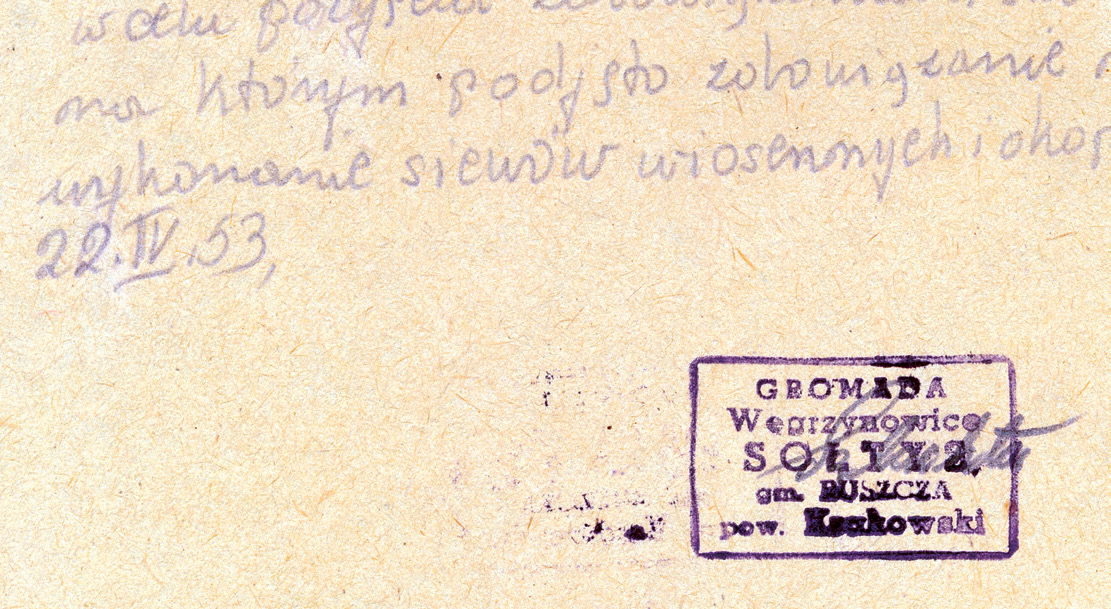 w celu
na którym podjęto zobowiązanie
wykonanie siewów wiosennych i okop
22.IV.53,
GROMADA
Węgrzynowice
SOŁTYS
gm. RUSZCZA
pow. Krakowski